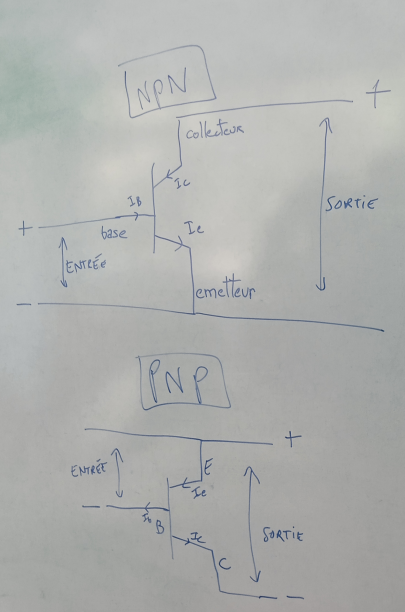 NPN
+
collecteur
Ic
IB
SORTIE
Ie
+
base
ENTRÉE
emetteur
—
PNP
+
ENTRÉE
E
Ie
—
Ib
B
Ic
SORTIE
C
—